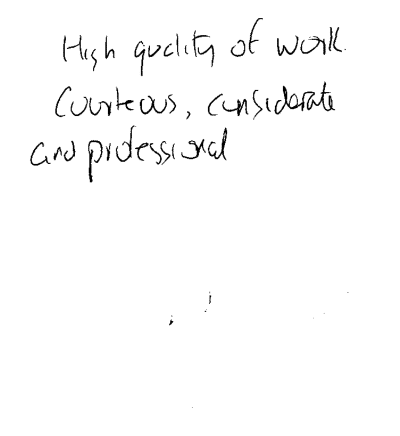 High quality of work.
Courteous, considerate
and professional